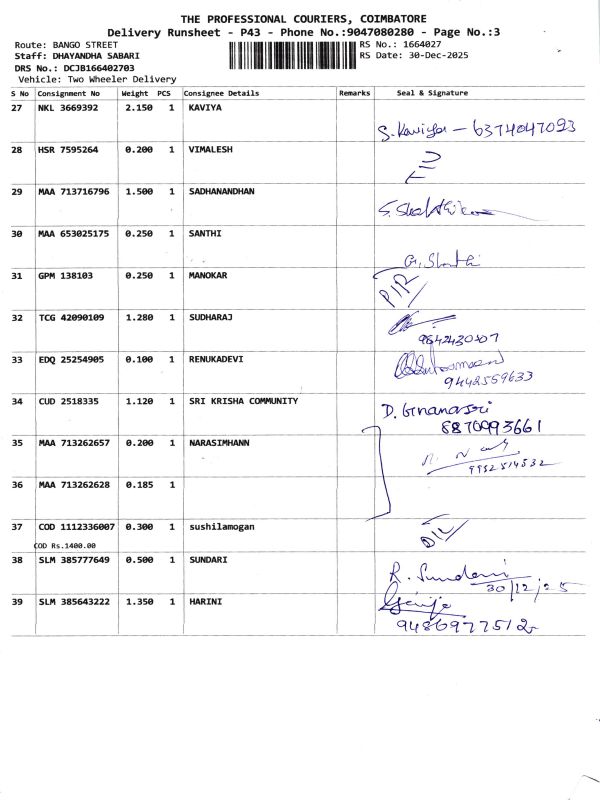 THE PROFESSIONAL COURIERS, COIMBATORE
Delivery Runsheet - P43 - Phone No.:9047080280 - Page No.:3
Route: BANGO STREET RS No.: 1664027
Staff: DHAYANDHA SABARI RS Date: 30-Dec-2025
DRS No.: DCJB166402703
Vehicle: Two Wheeler Delivery
S No Consignment No Weight PCS Consignee Details Remarks Seal & Signature
27 NKL 3669392 2.150 1 KAVIYA
S. Kaviya - 6374047093
28 HSR 7595264 0.200 1 VIMALESH
29 MAA 713716796 1.500 1 SADHANANDHAN
30 MAA 653025175 0.250 1 SANTHI
G. Shanthi
31 GPM 138103 0.250 1 MANOKAR
32 TCG 42090109 1.280 1 SUDHARAJ
33 EDQ 25254905 0.100 1 RENUKADEVI
9442559633
34 CUD 2518335 1.120 1 SRI KRISHA COMMUNITY
D. Gnanasri
8870993661
35 MAA 713262657 0.200 1 NARASIMHANN
9952514532
36 MAA 713262628 0.185 1
37 COD 1112336007 0.300 1 sushilamogan
COD Rs.1400.00
38 SLM 385777649 0.500 1 SUNDARI
R. Sundari
30/12/25
39 SLM 385643222 1.350 1 HARINI
9486977512